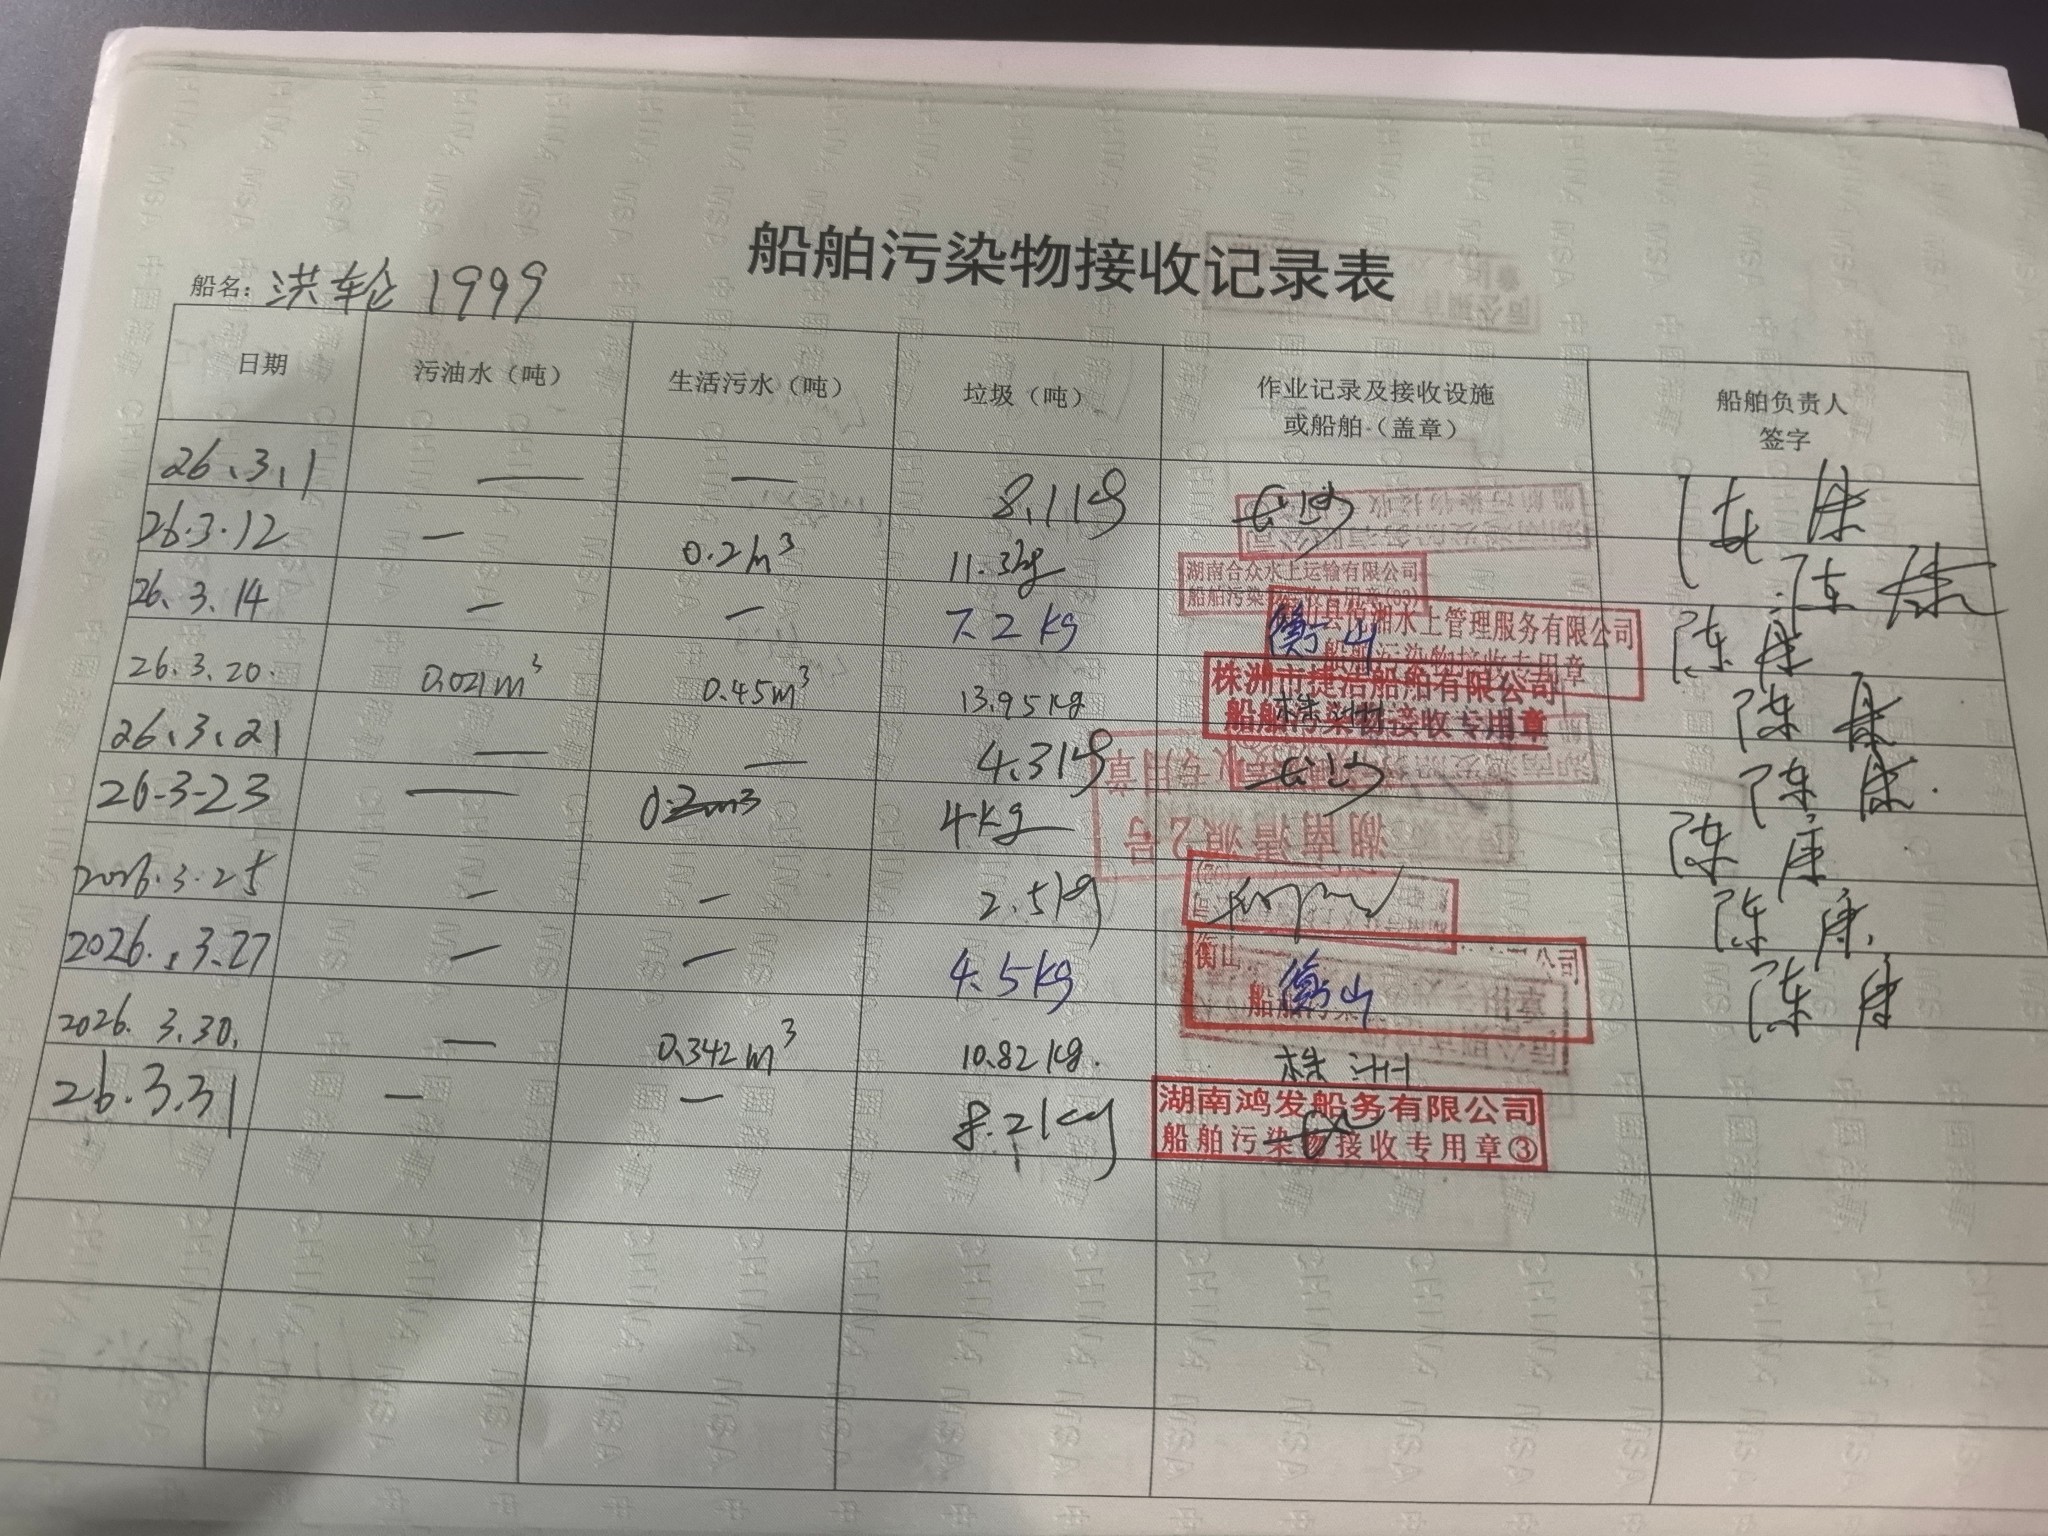 船舶污染物接收记录表
船名: 洪轮 1999
日期 污油水（吨） 生活污水（吨） 垃圾（吨） 作业记录及接收设施或船舶（盖章） 船舶负责人签字
26.3.1 — — 8.1kg 长沙 陈康
26.3.12 — 0.2m³ 11.3kg 湖南合众水上运输有限公司 陈康
26.3.14 — — 7.2kg 衡山 水上管理服务有限公司 船舶污染物接收专用章 陈康
26.3.20. 0.021m³ 0.45m³ 13.95kg 株洲市捷洁船舶有限公司 船舶污染物接收专用章 株洲 陈康
26.3.21 — — 4.3kg 长沙 陈康.
26-3-23 — 0.2m3 4kg 湖南清源2号 陈康
2026.3.25 — — 2.5kg 陈康.
2026.3.27 — — 4.5kg 衡山 公司 陈康
2026.3.30. — 0.342m³ 10.82kg. 株洲
26.3.31 — — 8.2kg 湖南鸿发船务有限公司 船舶污染物接收专用章③
CHINA MSA 中国海事